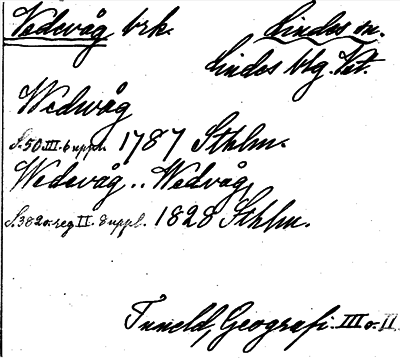 Vedevåg brk. Lindes sn.
Lindes blg. Vst.
Wedwåg
S. 50. III. 6 uppl. 1787 Sthlm.
Wedevåg .. Wedvåg
S. 382 o. reg II. 8 uppl. 1828 Sthlm.
Tuneld, Geografi. III o. II